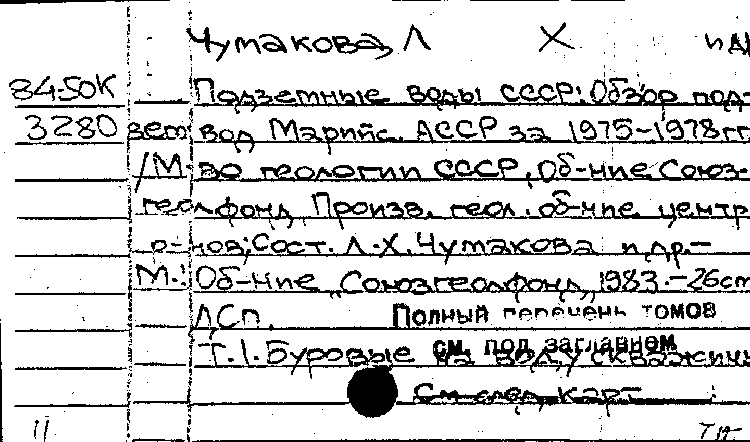 Чумакова, Л Х и др
84-50К Подземные воды СССР: Обзор под-
3280 зем вод Марийс. АССР за 1975-1978гг
/М-во геологии СССР, Об-ние Союз-
геолфонд, Произв. геол. об-ние центр
р-нов; Сост. Л.Х. Чумакова и др.-
М.: Об-ние "Союзгеолфонд", 1983.-26см
ДСП. Полный перечень томов
см. под заглавием
Т.1. Буровые на воду скважины
См след. карт
11